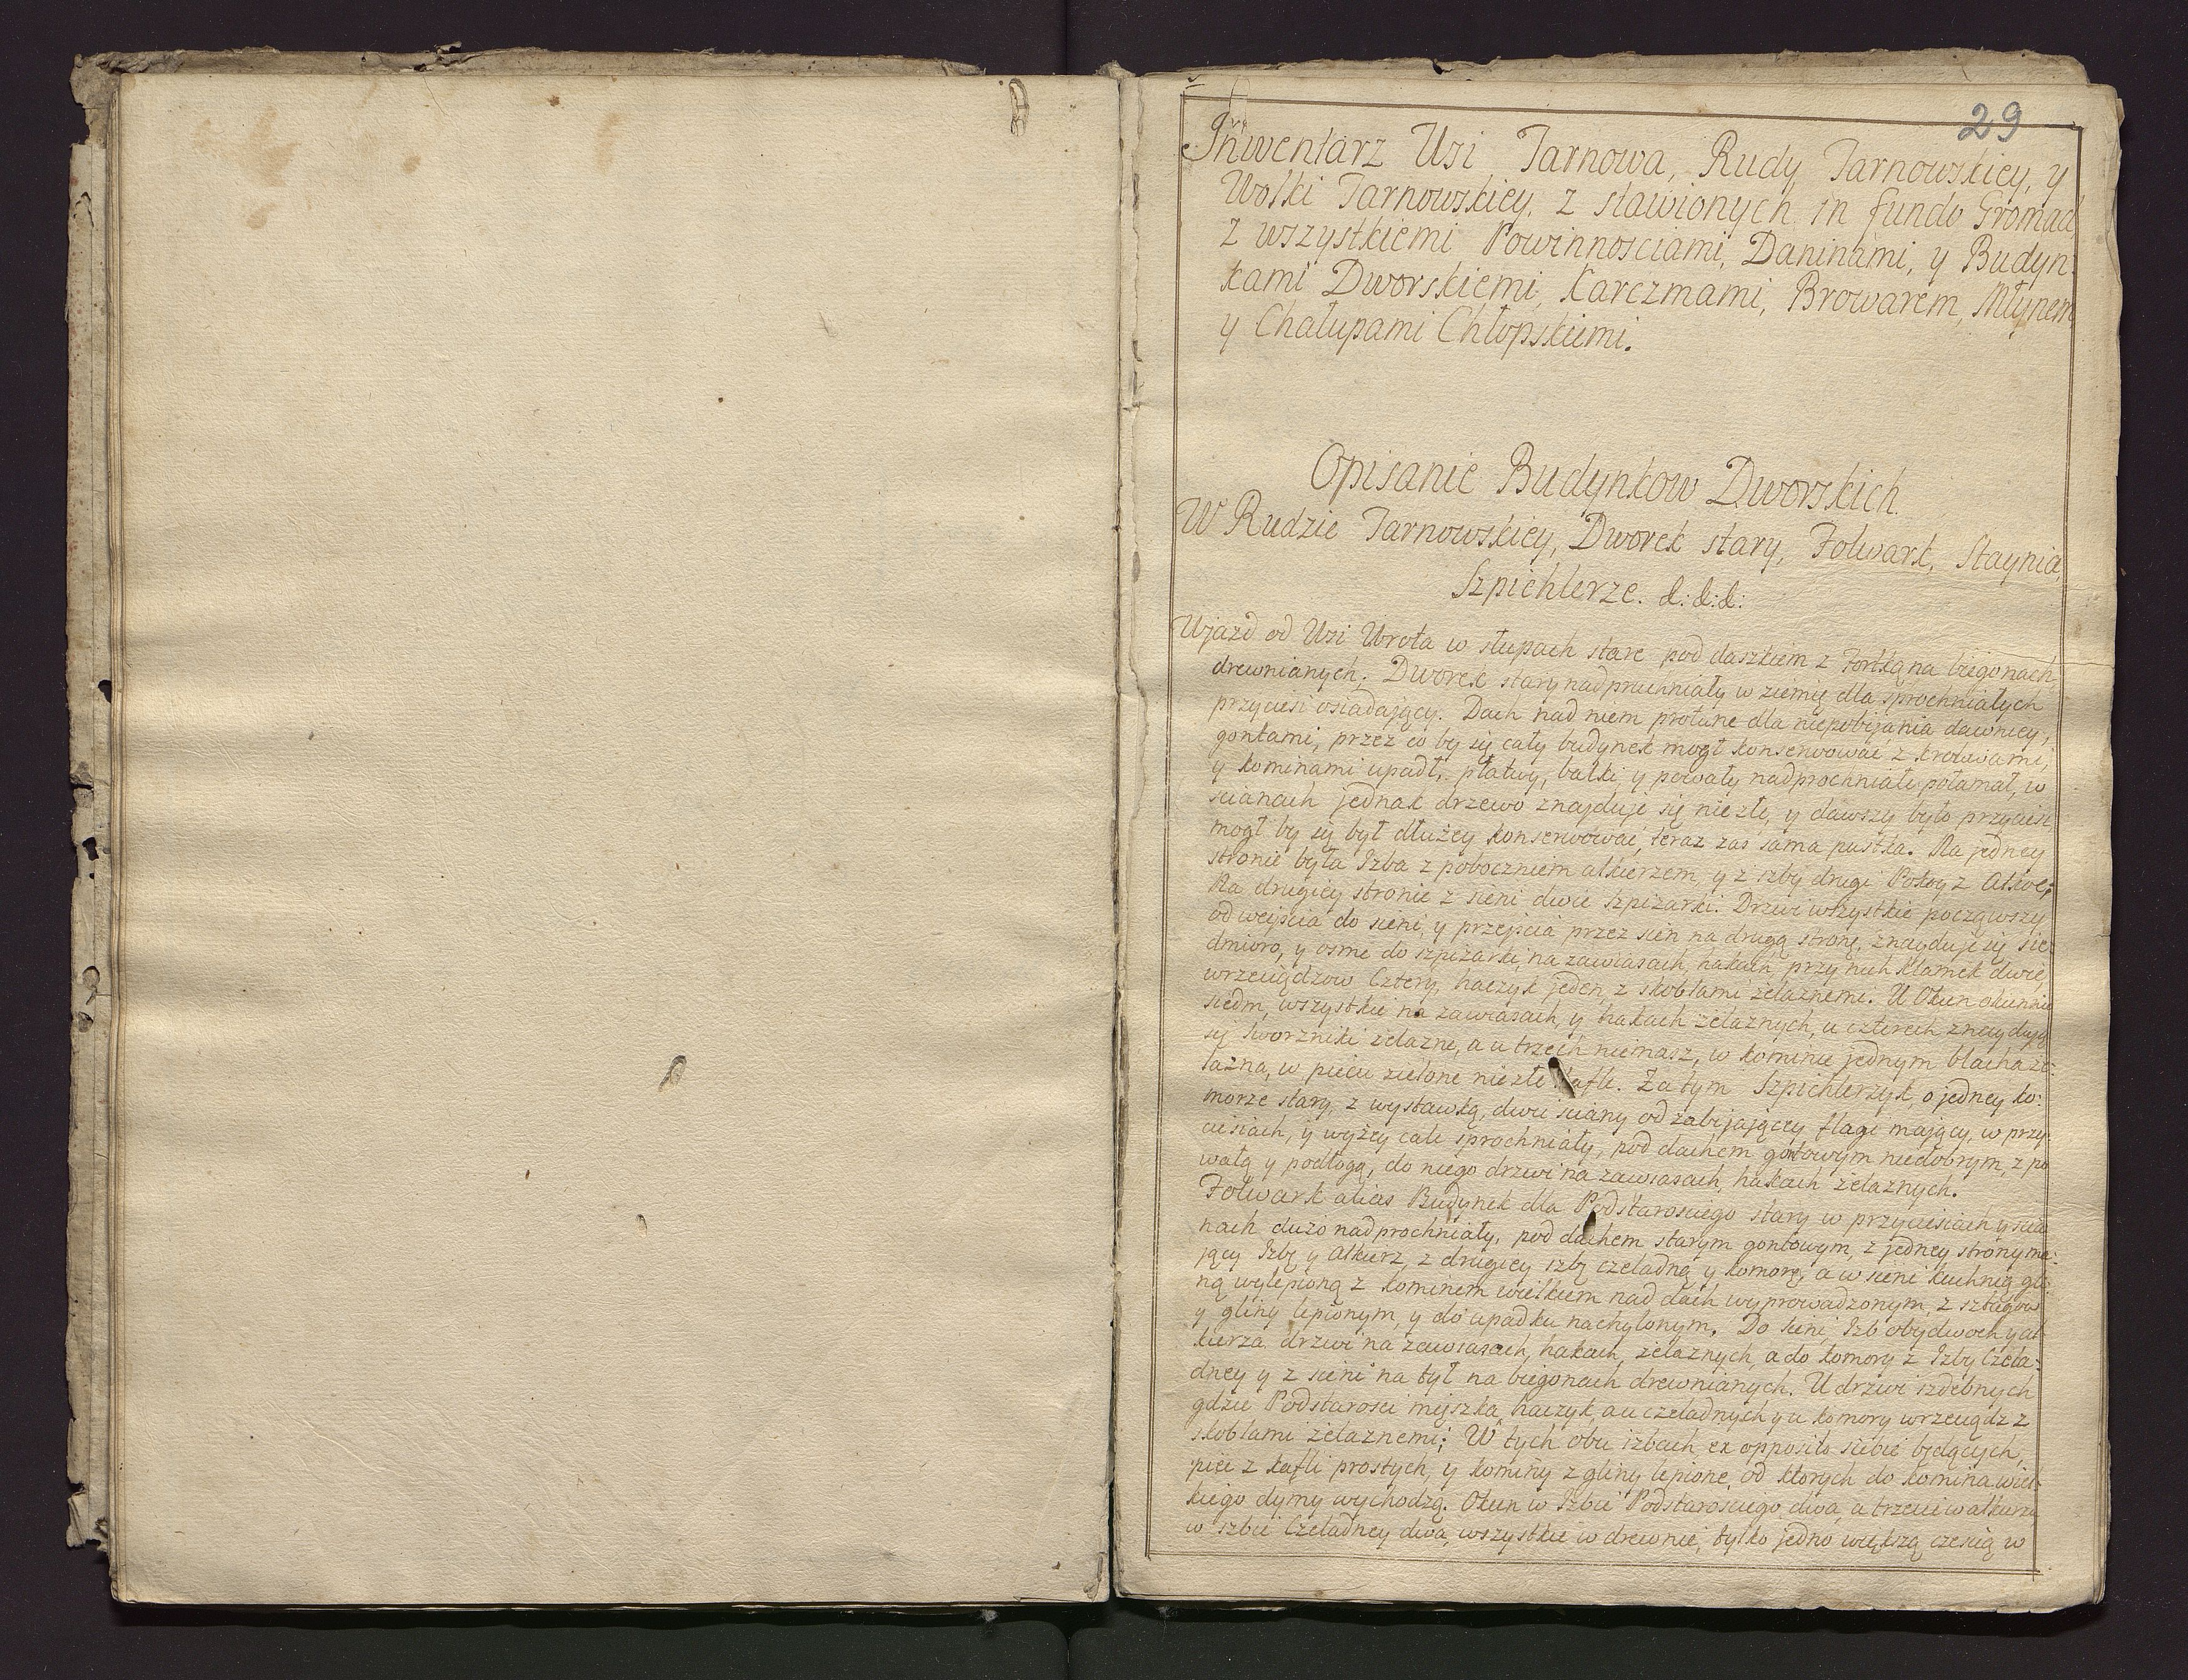 29
Inwentarz Wsi Tarnowa, Rudy Tarnowskiey, y
Wolki Tarnowskiey, z stawionych in fundo Gromad
z wszystkiemi Powinnosciami, Daninami, y Budyn:
kami Dworskiemi, Karczmami, Browarem, Młynem
y Chałupami Chłopskiemi.
Opisanie Budynkow Dworskich.
W Rudzie Tarnowskiey, Dworek stary, Folwark, Staynia,
Szpichlerze. &: &: &:
Wjazd od Wsi Wrota w słupach stare pod daszkiem z Fortką na biegonach
drewnianych. Dworek stary nadpruchniały w ziemię dla sprochniałych
przyciesi osiadaiący. Dach nad niem dla niepobijania dawniey,
gontami, przez co by się cały budynek mogł konserwować z krokwami,
y kominami upadł, płatwy, balki y powały nadprochniałe połamał, w
scianach jednak drzewo znajduje się niezłe, y dawszy było przyciesi
mogł by się był dłużey konserwować, teraz zas sama pustka. Na jedney
stronie była Izba z pobocznem alkierzem, y z izby drugi Pokoy z Alkie:
Na drugiey stronie z sieni dwie szpiżarki. Drzwi wszystkie począwszy
od weiscia do sieni, y przejscia przez sien na drugą stronę, znayduje się sie
dmioro, y osme do szpiżarki, na zawiasach, hakach, przy nich klamek dwie,
wrzeciądzow Cztery, haczyk jeden, z skoblami żelaznemi. U Okien okiennic
siedm, wszystkie na zawiasach, y hakach żelaznych, u czterech znayduią
się sworzniki żelazne, a u trzech niemasz, w kominie jednym blacha że:
lazna, w piecu zielone niezłe kafle. Za tym Szpichlerzyk o jedney ko:
morze stary, z wystawką, dwie sciany od zabijającey flagi mający, w przy
ciesiach, y wyżey cale sprochniały, pod dachem gontowym niedobrym, z po
wałą y podłogą, do niego drzwi na zawiasach, hakach żelaznych.
Folwark alias Budynek dla Podstarosciego stary w przyciesiach y scia
nach dużo nadprochniały, pod dachem starym gontowym, z jedney strony ma:
jący Izbę y Alkierz, z drugiey izbę czeladną y komorę, a w sieni kuchnię gli
ną wylepioną z kominem wielkiem nad dach wyprowadzonym, z sztagow
y gliny lepionym, y do upadku nachylonym. Do sieni, Izb obydwoch y al
kierza drzwi na zawiasach, hakach, żelaznych, a do komory z Izby Czela:
dney y z sieni na tył na biegonach drewnianych. U drzwi izdebnych
gdzie Podstarosci mieszka, haczyk, a u czeladnych y u komory wrzeciądz z
skoblami żelaznemi; W tych obu izbach ex opposito siebie będących,
piece z kafli prostych, y kominy z gliny lepione, od ktorych do komina wiel
kiego dymy wychodzą. Okien w Izbie Podstarosciego dwa, a trzecie w alkierzu
w izbie Czeladney dwa, wszystkie w drewnie, tylko jedno większą czescią w